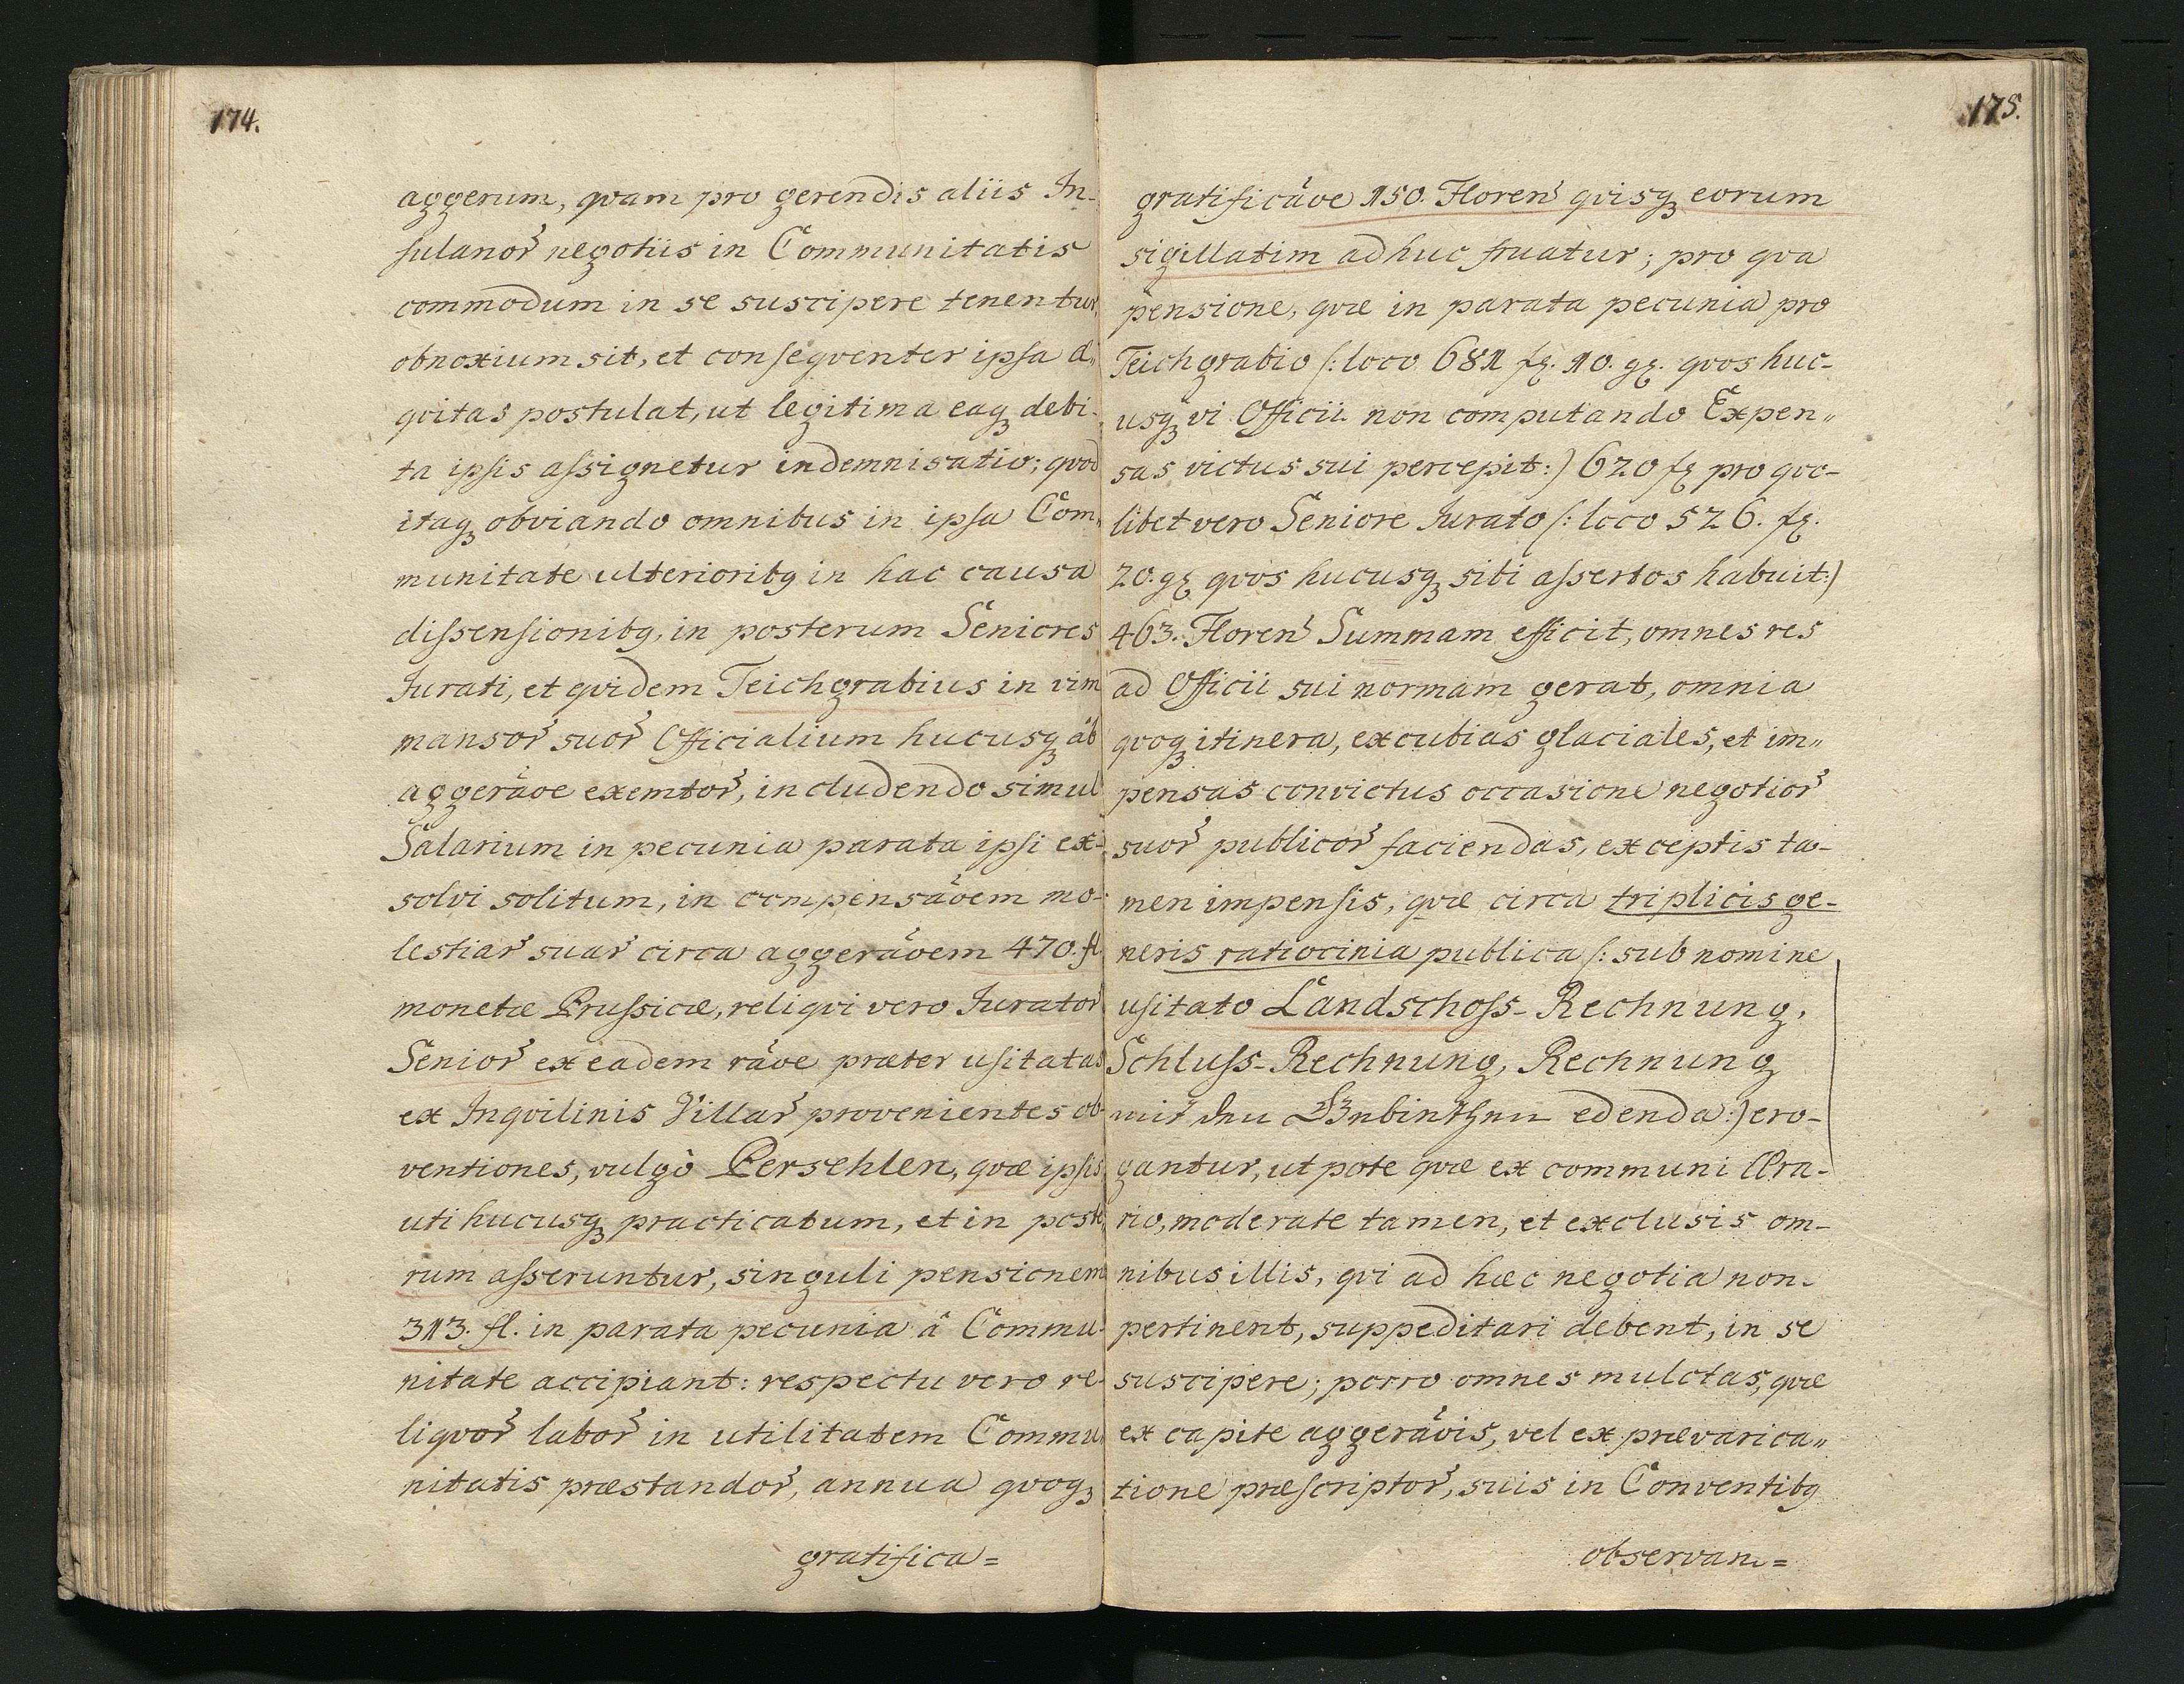 174.
aggerum, qvam pro gerendis aliis In-
sulanor̃ negotiis in Communitatis
commodum in se suscipere tenentur,
obnoxium sit, et conseqventer ipsa æ„
qvitas postulat, ut legitima eaq₃ debi-
ta ipsis assignetur indemnisatio; qvod
itaq₃ obviando omnibus in ipsa Com„
munitate ulterioribq in hac causa
dissensionibq, in posterum Seniores
Jurati, et qvidem Teichgrabius in vim
mansor̃ suor̃ Officialium hucusq₃ ab
aggerãoe exemtor̃, includendo simul
Salarium in pecunia parata ipsi ex-
solvi solitum, in compensãoem mo-
lestiar̃ suar̃ circa aggerãoem 470. fl.
monetæ Prussicæ, reliqvi vero Jurator̃
Senior̃ ex eadem rãoe præter usitatas
ex Inqvilinis Villar̃ provenientes ob-
ventiones, vulgò Persehlen, qvæ ipsis,
uti hucusq₃ practicatum, et in poste„
rum asseruntur, singuli pensionem
313. fl. in parata pecunia â Commu-
nitate accipiant: respectu vero re-
liqvor̃ labor̃ in utilitatem Commu„
nitatis præstandor̃, annua qvoq₃
gratifica=
175.
gratificãoe 150. Floren̛ qvisq₃ eorum
sigillatim adhuc fruatur; pro qva
pensione, qvæ in parata pecunia pro
Teichgrabio /: loco 681 fł. 10. gł. qvos huc-
usq₃ vi Officii non computando Expen„
sas victus sui percepit:) 620 fł pro qvo-
libet vero Seniore Jurato /: loco 526. fł.
20. gł qvos hucusq₃ sibi assertos habuit:)
463. Floren̛ Summam efficit, omnes res
ad Officii sui normam gerat, omnia
qvoq₃ itinera, excubias glaciales, et im„
pensas convictus occasione negotior̃
suor̃ publicor̃ faciendas, exceptis ta-
men impensis, qvæ circa triplicis ge-
neris ratiocinia publica /: sub nomine
usitato Landschoss-Rechnung,
Schluss-Rechnung, Rechnung
mit den Gebiethen edenda:) ero-
gantur, utpote qvæ ex communi Æra-
rio, moderate tamen, et exclusis om-
nibus illis, qvi ad hæc negotia non-
pertinent, suppeditari debent, in se
suscipere; porro omnes mulctas, qvæ
ex capite aggerãois, vel ex prævarica„
tione præscriptor̃, suis in Conventibq
observan=